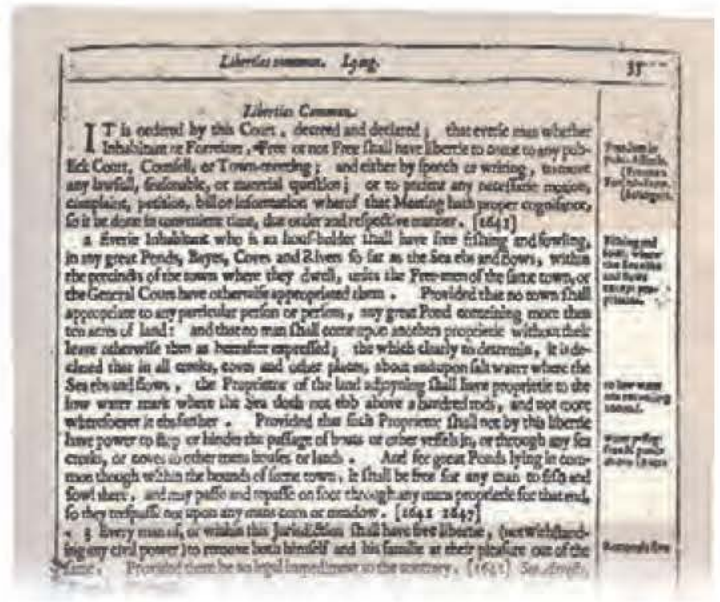 Liberties common. Lying.
35
Liberties Common.
IT is ordered by this Court, decreed and declared; that everie man whether
Inhabitant or Forreiner, Free or not Free shall have libertie to come to any pub-
lick Court, Counsell, or Town-meeting; and either by speech or writing, to move
any lawfull, seasonable, or material question; or to present any necessarie motion,
complaint, petition, bill or information wherof that Meeting hath proper cognisance,
so it be done in convenient time, due order and respective manner. [1641]
2 Everie Inhabitant who is an hous-holder shall have free fishing and fowling,
in any great Ponds, Bayes, Coves and Rivers so far as the Sea ebs and flows, within
the precincts of the town where they dwell, unles the Free-men of the same town, or
the General Court have otherwise appropriated them. Provided that no town shall
appropriate to any particular person or persons, any great Pond containing more then
ten acres of land: and that no man shall come upon anothers proprietie without their
leave otherwise then as heerafter expressed; the which clearly to determin, it is de-
clared that in all creeks, coves and other places, about and upon salt water where the
Sea ebs and flows, the Proprietor of the land adjoyning shall have proprietie to the
low water mark where the Sea doth not ebb above a hundred rods, and not more
wheresoever it ebs farther. Provided that such Proprietor shall not by this libertie
have power to stop or hinder the passage of boats or other vessels in, or through any sea
creeks, or coves to other mens houses or lands. And for great Ponds lying in com-
mon though within the bounds of some town, it shall be free for any man to fish and
fowl there, and may passe and repasse on foot through any mans proprietie for that end,
so they trespasse not upon any mans corn or meadow. [1641 1647]
3 Every man of, or within this Jurisdiction shall have free libertie, (notwithstand-
ing any civil power) to remove both himself and his familie at their pleasure out of the
same. Provided there be no legal impediment to the contrary. [1641] See
Freedom in
Fishing and
where
and flows
to low water
Removals free